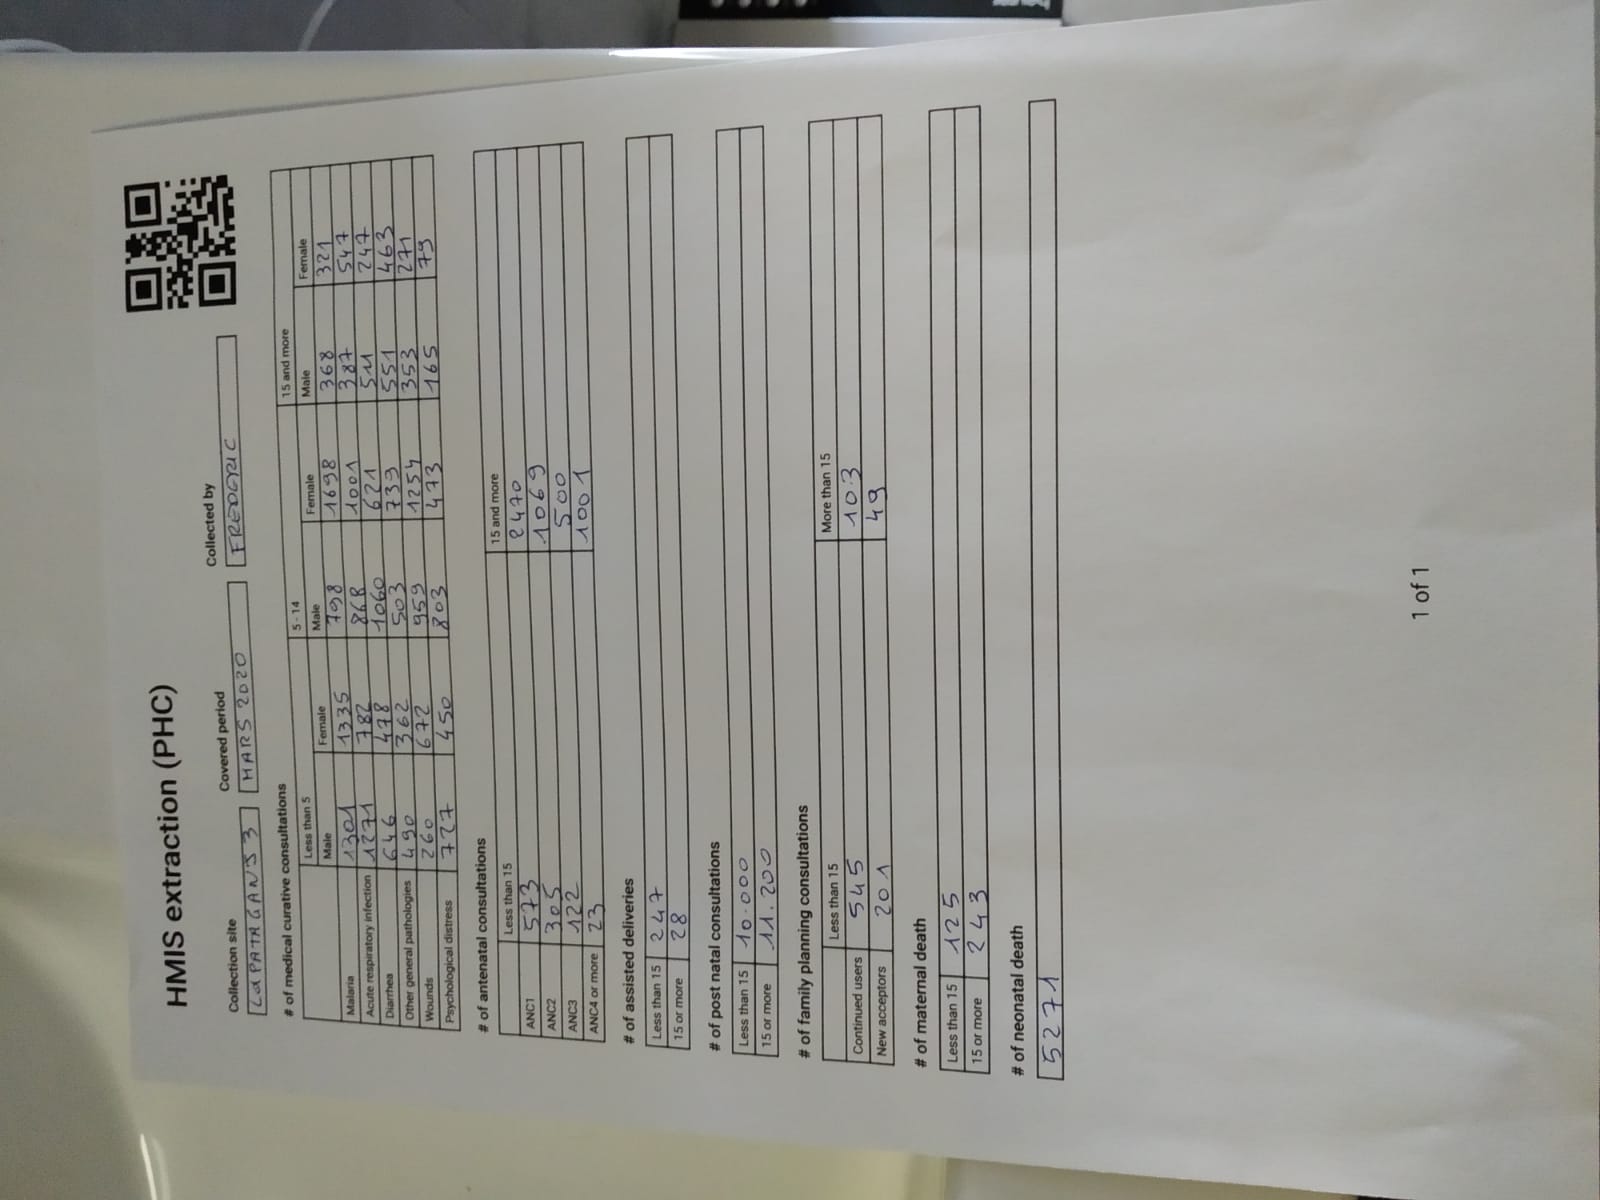 HMIS extraction (PHC)
Collection site Covered period Collected by
MARS 2020 FREDERIC
# of medical curative consultations
Less than 5 5 - 14 15 and more
Male Female Male Female Male Female
Malaria 1301 1335 798 1698 368 321
Acute respiratory infection 1271 782 868 1001 387 547
Diarrhea 646 478 1060 621 511 247
Other general pathologies 490 362 503 739 551 463
Wounds 260 672 959 1254 353 271
Psychological distress 727 450 803 473 165 79
# of antenatal consultations
Less than 15 15 and more
ANC1 573 2470
ANC2 305 1069
ANC3 122 500
ANC4 or more 23 1001
# of assisted deliveries
Less than 15 247
15 or more 28
# of post natal consultations
Less than 15 10.000
15 or more 11.200
# of family planning consultations
Less than 15 More than 15
Continued users 545 103
New acceptors 201 49
# of maternal death
Less than 15 125
15 or more 243
# of neonatal death
5271
1 of 1